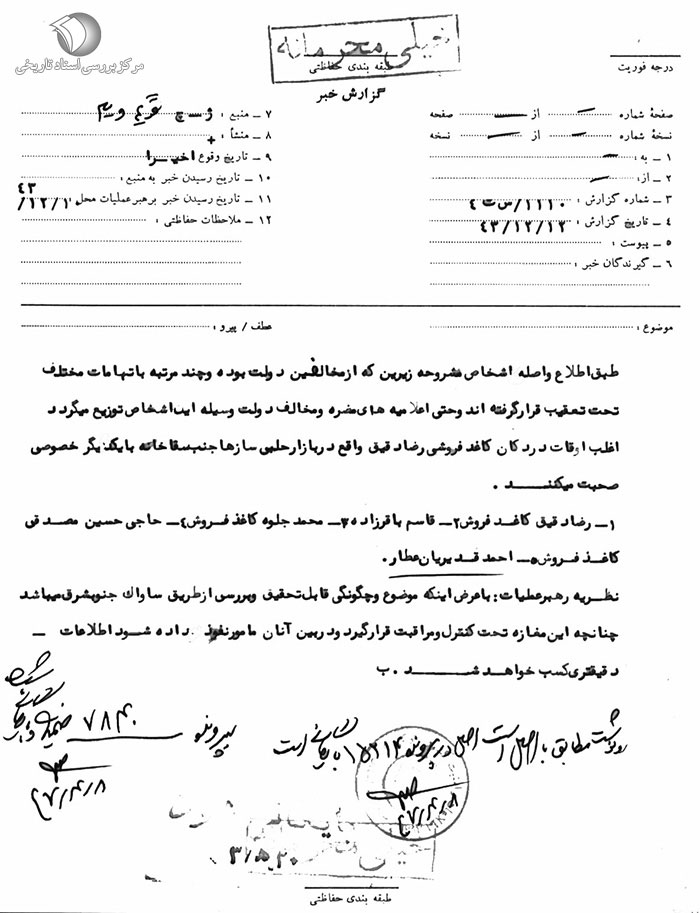 مرکز بررسی اسناد تاریخی
خیلی محرمانه
طبقه بندی حفاظتی
گزارش خبر
درجه فوریت
صفحهٔ شماره — از — صفحه
نسخهٔ شماره — از — نسخه
۱ ــ به : —
۲ ــ از : —
۳ ــ شماره گزارش : ۱۱۱۰/س ت ٤
۴ ــ تاریخ گزارش : ٤٣/١٢/١٢
۵ ــ پیوست :
۶ ــ گیرندگان خبر :
۷ ــ منبع :
۸ ــ منشأ : +
۹ ــ تاریخ وقوع اخیرا
۱۰ ــ تاریخ رسیدن خبر به منبع :
۱۱ ــ تاریخ رسیدن خبر برهبر عملیات محل : ٤٣/١٢/١٠
۱۲ ــ ملاحظات حفاظتی :
موضوع :
عطف / پیرو :
طبق اطلاع واصله اشخاص مشروحه زیرین که از مخالفین دولت بوده و چند مرتبه با تهامات مختلف
تحت تعقیب قرار گرفته اند و حتی اعلامیه های مضره و مخالف دولت وسیله این اشخاص توزیع میگردد
اغلب اوقات در دکان کاغذ فروشی رضا دقیق واقع در بازار حلبی سازها جنب سقاخانه با یکدیگر خصوصی
صحبت میکنند .
۱ــ رضا دقیق کاغذ فروش ۲ــ قاسم باقرزاده ۳ــ محمد جلوه کاغذ فروش ٤ــ حاجی حسین مصدقی
کاغذ فروش ۵ــ احمد قدیریان عطار .
نظریه رهبر عملیات : با عرض اینکه موضوع و چگونگی قابل تحقیق و بررسی از طریق ساواک جنوبشرق میباشد
چنانچه این مغازه تحت کنترل و مراقبت قرار گیرد و در بین آنان مامور نفوذ داده شود اطلاعات ــ
دقیقتری کسب خواهد شد . ب
رونوشت مطابق با اصل است اصل در پرونده ۱۵۲۱۴ بایگانی است
پرونده ۷۸۴۰ ضمیمه و بایگانی
٤٧/٣/٨
٤٧/٣/٨
طبقه بندی حفاظتی